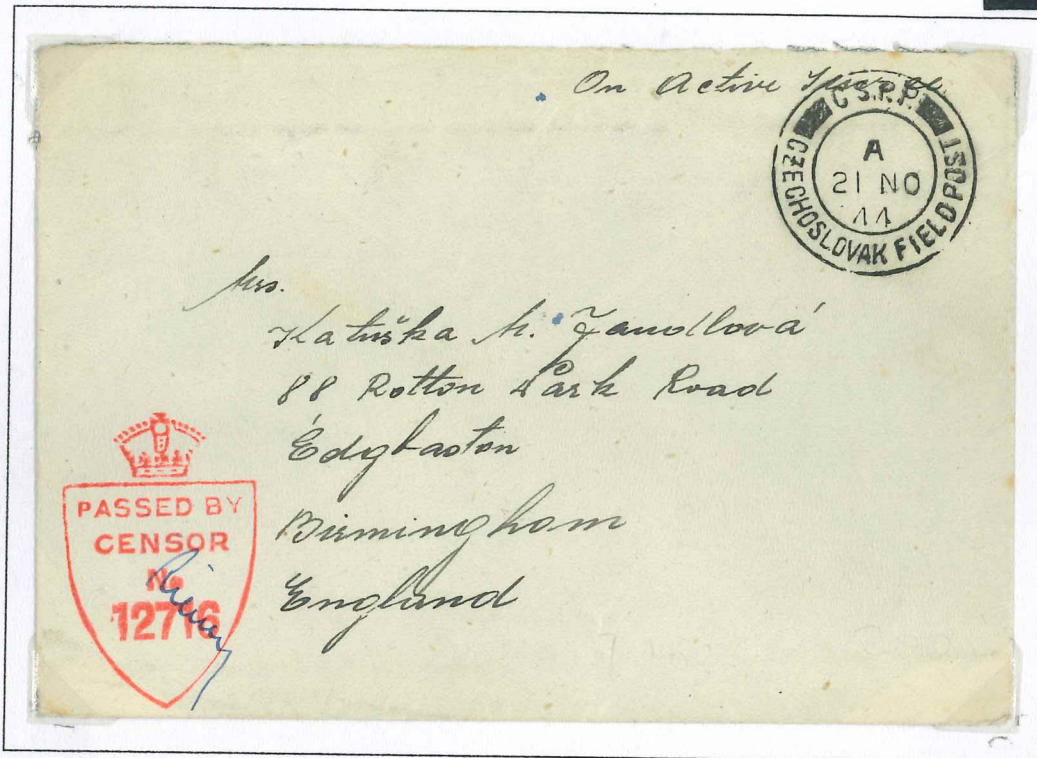 On Active Service
C S.P.P.
CZECHOSLOVAK FIELD POST
A
21 NO
44
Mrs.
Katuška M. Jandlová
88 Rotton Park Road
Edgbaston
Birmingham
England
PASSED BY
CENSOR
No
12716